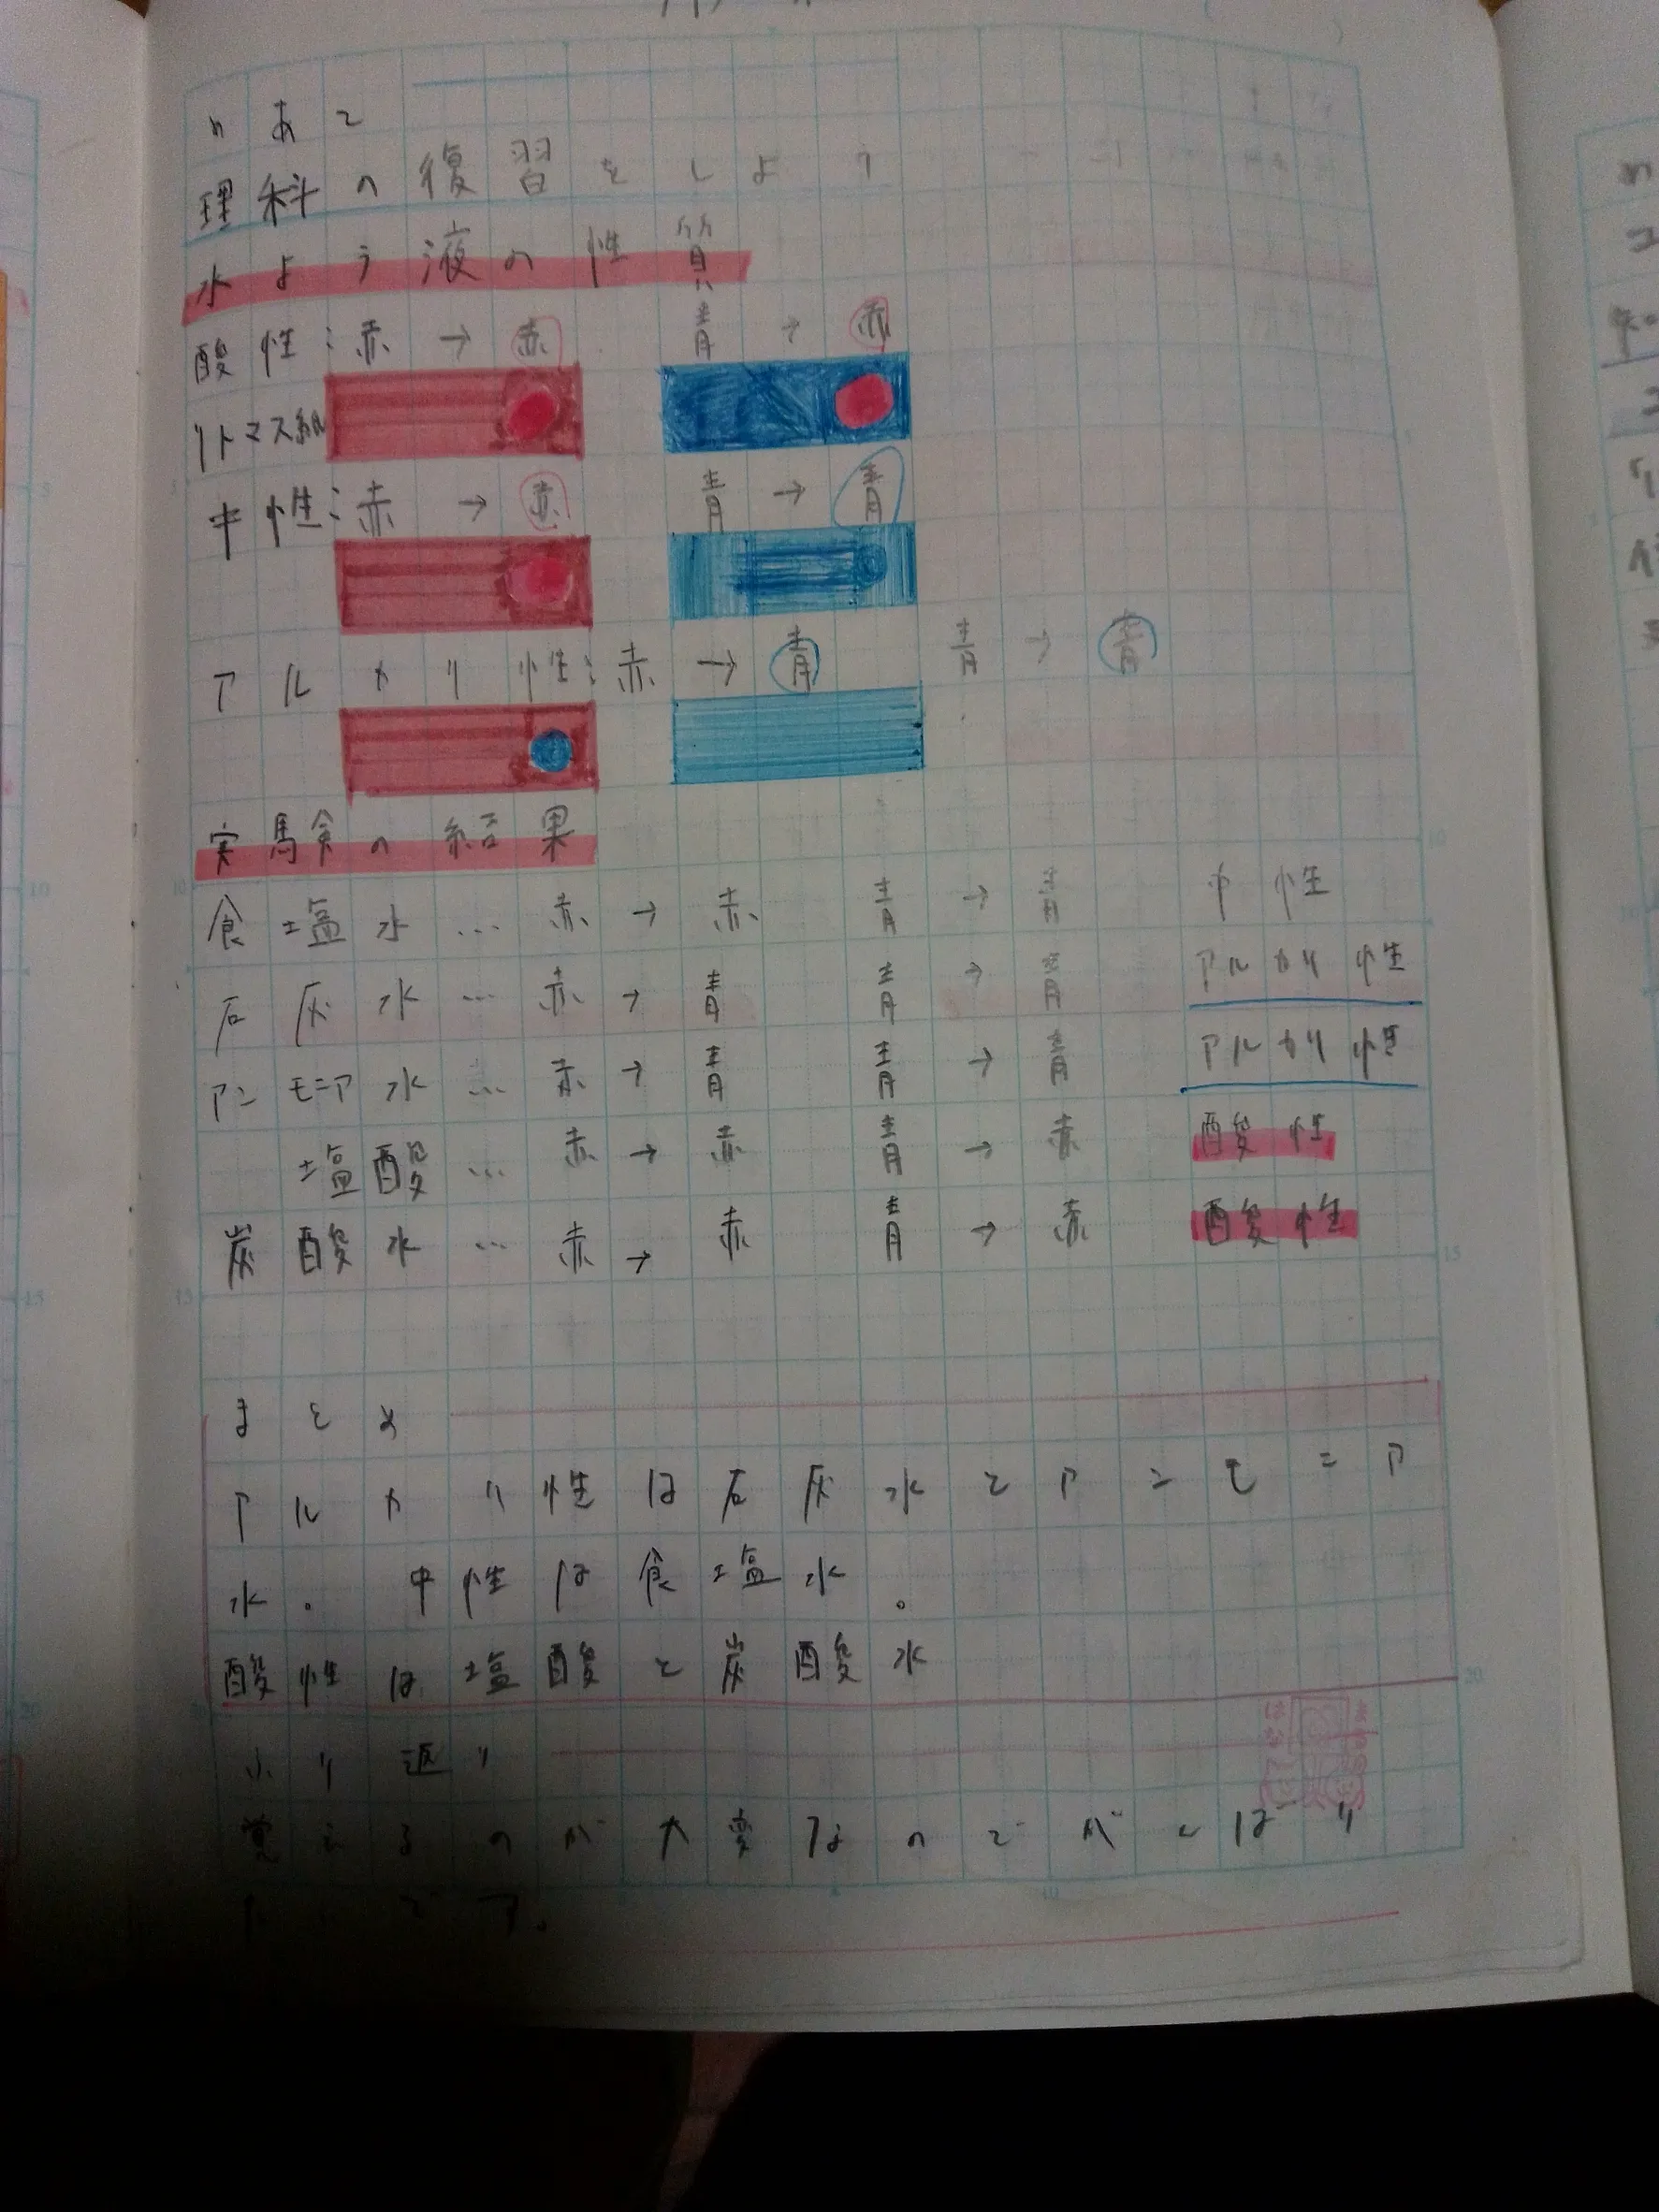 めあて
理科の復習をしよう
水よう液の性質
酸性:赤→赤 青→赤
リトマス紙
中性:赤→赤 青→青
アルカリ性:赤→青 青→青
実験の結果
食塩水…赤→赤 青→青 中性
石灰水…赤→青 青→青 アルカリ性
アンモニア水…赤→青 青→青 アルカリ性
塩酸…赤→赤 青→赤 酸性
炭酸水…赤→赤 青→赤 酸性
まとめ
アルカリ性は石灰水とアンモニア
水。中性は食塩水。
酸性は塩酸と炭酸水
ふり返り
覚えるのが大変なのでがんばり
たいです。